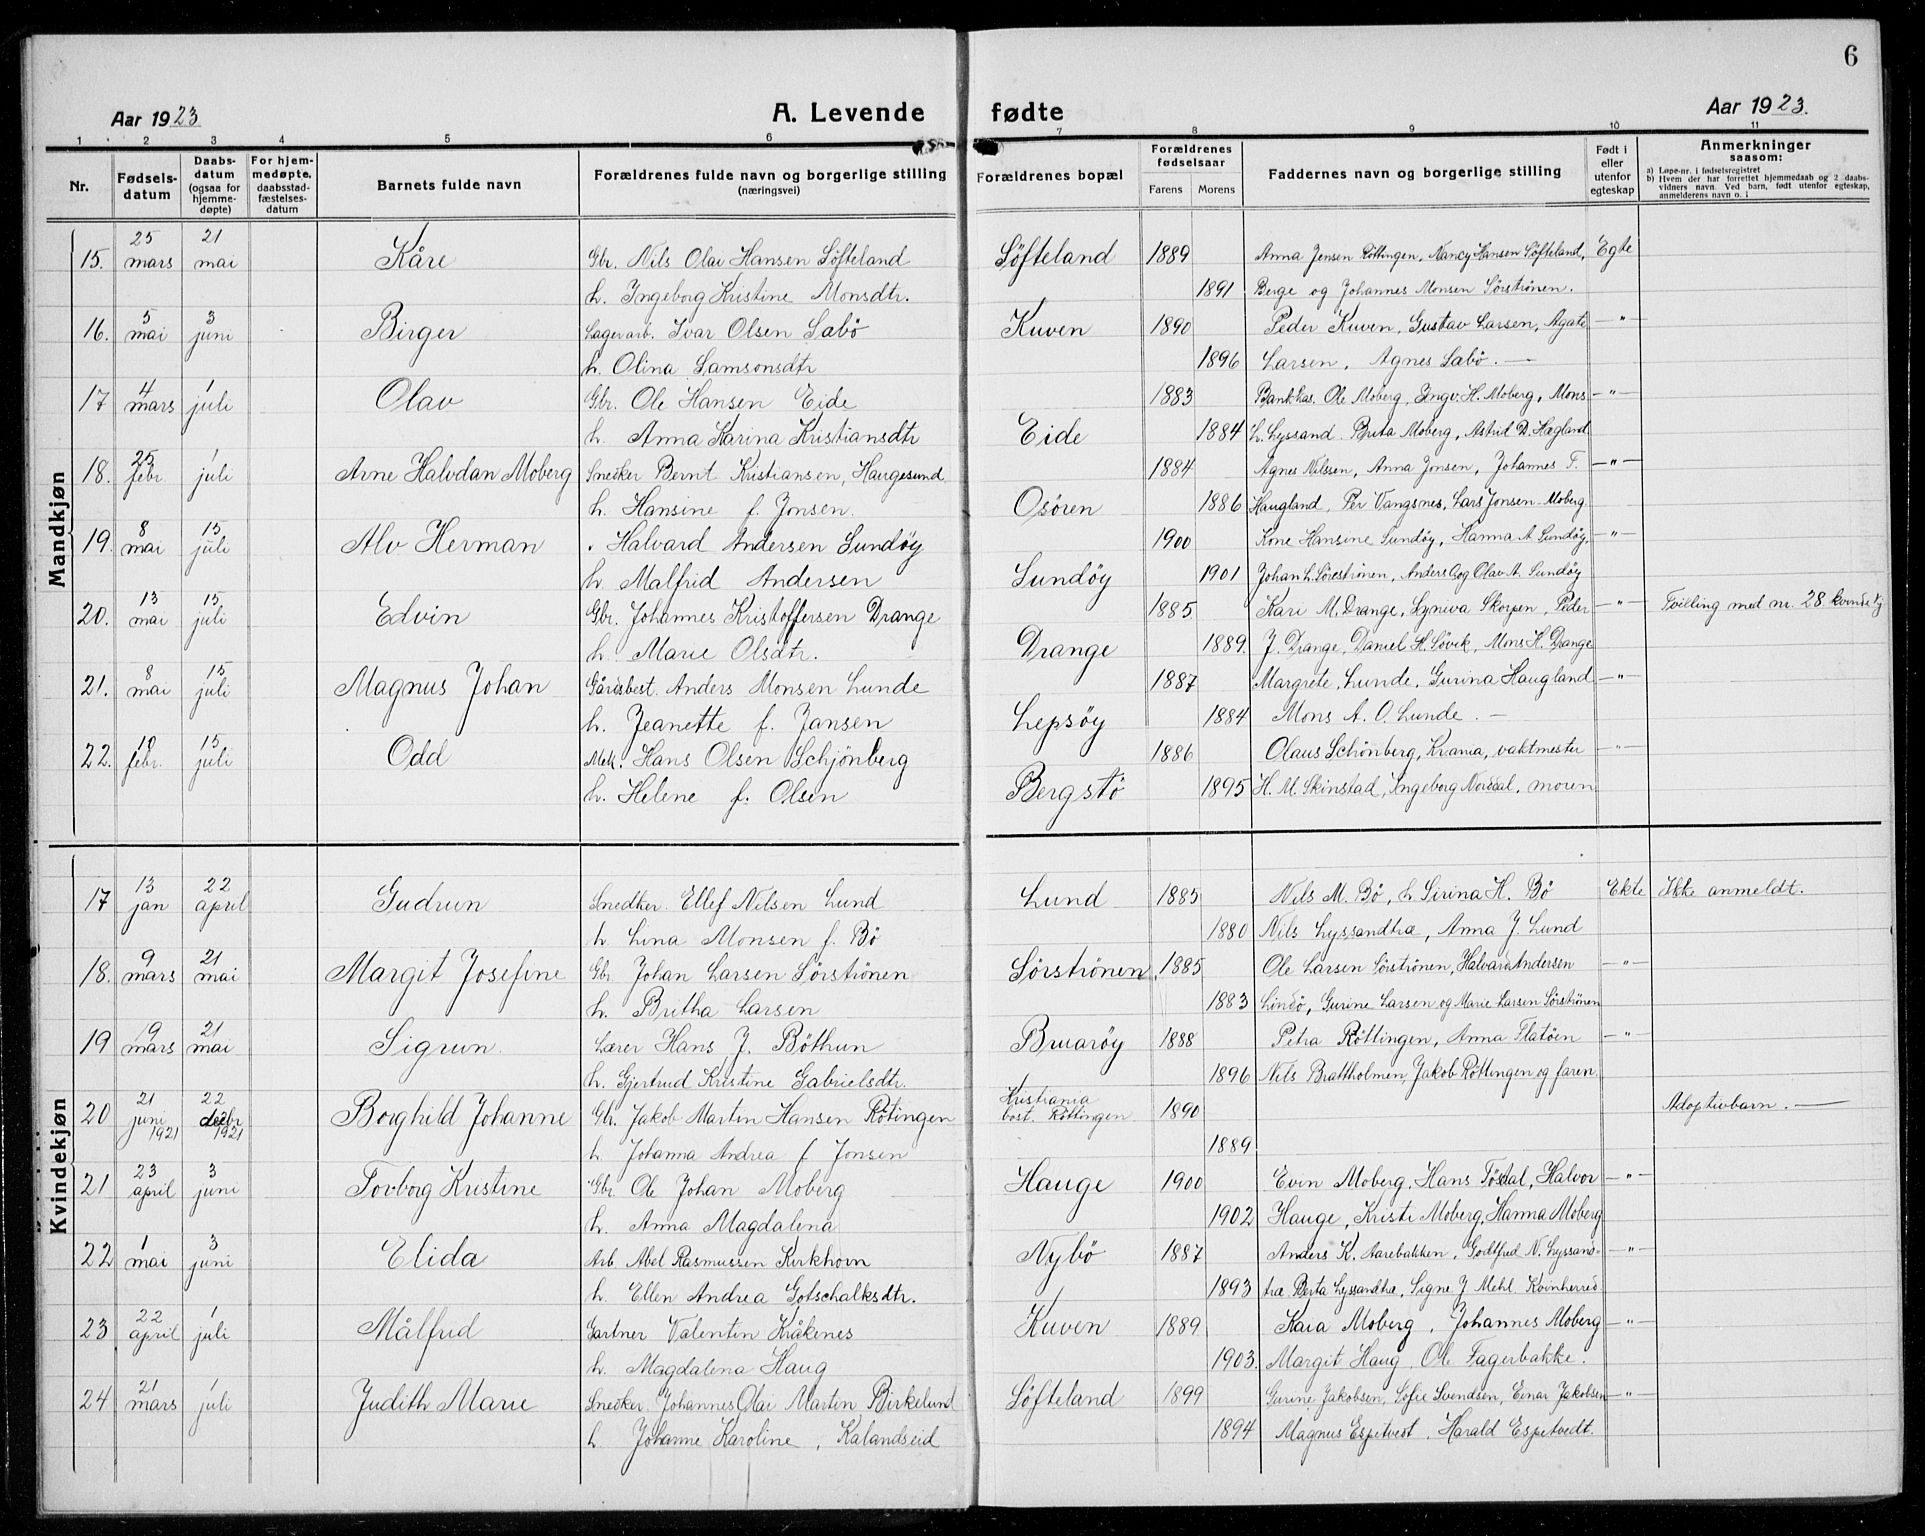 6
Aar 1923 A. Levende fødte Aar 1923.
1 2 3 4 5 6 7 8 9 10 11
Nr. Fødsels-datum Daabs-datum (ogsaa for hjemme-døpte) For hjem-medøpte, daabsstad-fæstelses-datum Barnets fulde navn Forældrenes fulde navn og borgerlige stilling (næringsvei) Forældrenes bopæl Forældrenes fødselsaar Farens Morens Faddernes navn og borgerlige stilling Født i eller utenfor egteskap Anmerkninger saasom: a) Løpe-nr. i fødselsregistret b) Hvem der har forrettet hjemmedaab og 2 daabs-vidners navn. Ved barn, født utenfor egteskap, anmelderens navn o. l.
Mandkjøn
15. 25 mars 21 mai Kåre Gbr. Nils Olai Hansen Söfteland Söfteland 1889 Anna Jensen Röttingen, Nancy Hansen Söfteland, Egte
h. Ingeborg Kristine Monsdtr. 1891 Berge og Johannes Monsen Sörströnen.
16. 5 mai 3 juni Birger Lagerarb. Ivar Olsen Sabö Kuven 1890 Peder Kuven, Gustav Larsen, Agate —"—
h. Olina Samsonsdtr 1896 Larsen, Agnes Sabö. —
17 4 mars 1 juli Olav Gbr. Ole Hansen Eide 1883 Bankkas. Ole Moberg, Ingv. H. Moberg, Mons —"—
h. Anna Karina Kristiansdtr Eide 1884 L. Lyssand. Brita Moberg, Astrid D. Hægland
18. 25 febr. 1 juli Arne Halvdan Moberg Snedker Bernt Kristiansen, Haugesund 1884 Agnes Nilssen, Anna Jonsen, Johannes T. —"—
h. Hansine f. Jonsen. Osören 1886 Haugland, Per Vangsnes, Lars Jonsen-Moberg.
19. 8 mai 15 juli Alv Herman Halvard Andersen Sundöy 1900 Kone Hansine Sundöy, Hanna A Sundöy, —"—
h. Malfrid Andersen Sundöy 1901 Johan L. Söreströnen, Anders og Olav A. Sundöy
20. 13 mai 15 juli Edvin Gbr. Johannes Kristoffersen Drange 1885. Kari M. Drange, Syniva Skorpen, Peder —"— Tvilling med nr. 28 kvindekj
h. Marie Olsdtr. Drange 1889. J. Drange, Daniel H. Sövik, Mons H. Drange
21. 8 mai 15 juli Magnus Johan Gårdsbest. Anders Monsen Lunde 1887 Margrete Lunde, Gurina Haugland —"—
h. Jeanette f. Jansen Lepsöy 1884 Mons A. O. Lunde. —
22. 10 febr. 15 juli Odd Mek. Hans Olsen Schjönberg 1886 Olaus Schönberg, Krania, vaktmester —"—
h. Helene f. Olsen Bergstö 1895 H. M. Skinstad, Ingeborg Norddal, moren
Kvindekjøn
17 13 jan 22 april Gudrun Snedker Ellef Nilsen Lund Lund 1885 Nils M. Bö, h Sirina H. Bö Ekte Ikke anmeldt.
h Lina Monsen f. Bö 1880 Nils Lyssandtræ, Anna J. Lund
18. 9 mars 21 mai Margit Josefine Gbr. Johan Larsen Sörströnen Sörströnen 1885 Ole Larsen Sörströnen, Halvard Andersen —"—
h. Britha Larsen 1883 Lindö, Gurine Larsen og Marie Larsen Sörströnen
19 9 mars 21 mai Sigrun. Lærer Hans J. Böthun Bruaröy 1888 Petra Röttingen, Anna Flatöen —"—
h. Gjertrud Kristine Gabrielsdtr. 1896 Nils Brattholmen, Jakob Röttingen og faren.
20 21 juni 1921 22 decbr 1921 Borghild Johanne Gbr. Jakob Martin Hansen Rötingen Kristiania bost. Röttingen 1890 Adoptivbarn. —
h. Johanna Andrea f Jonsen 1889
21 23 april 3 juni Tovborg Kristine Gbr. Ole Johan Moberg Hauge 1900 Evin Moberg, Hans Tösdal, Halvor —"—
h. Anna Magdalena 1902 Hauge, Kristi Moberg, Hanna Moberg
22 1 mai 3 juni Elida Arb. Abel Rasmussen Kirkhovn Nybö 1887 Anders K. Aarebakken, Godtfred N. Lyssand- —"—
h. Ellen Andrea Gotschalksdtr. 1893 træ Berta Lyssandtræ, Signe J Mehl. Kvinherred
23 22 april 1 juli Målfrid Gartner Valentin Kråkenes Kuven 1889 Kaia Moberg, Johannes Moberg —"—
h. Magdalena Haug 1903. Margit Haug, Ole Fagerbakke.
24 21 mars 1 juli Judith Marie Snedker. Johannes Olai Martin Birkelund Söfteland 1899 Gurine Jakobsen, Sofie Svendsen, Einar Jakobsen —"—
h. Johanne Karoline, Kalandseid 1894 Magnus Espetvedt, Harald Espetvedt.